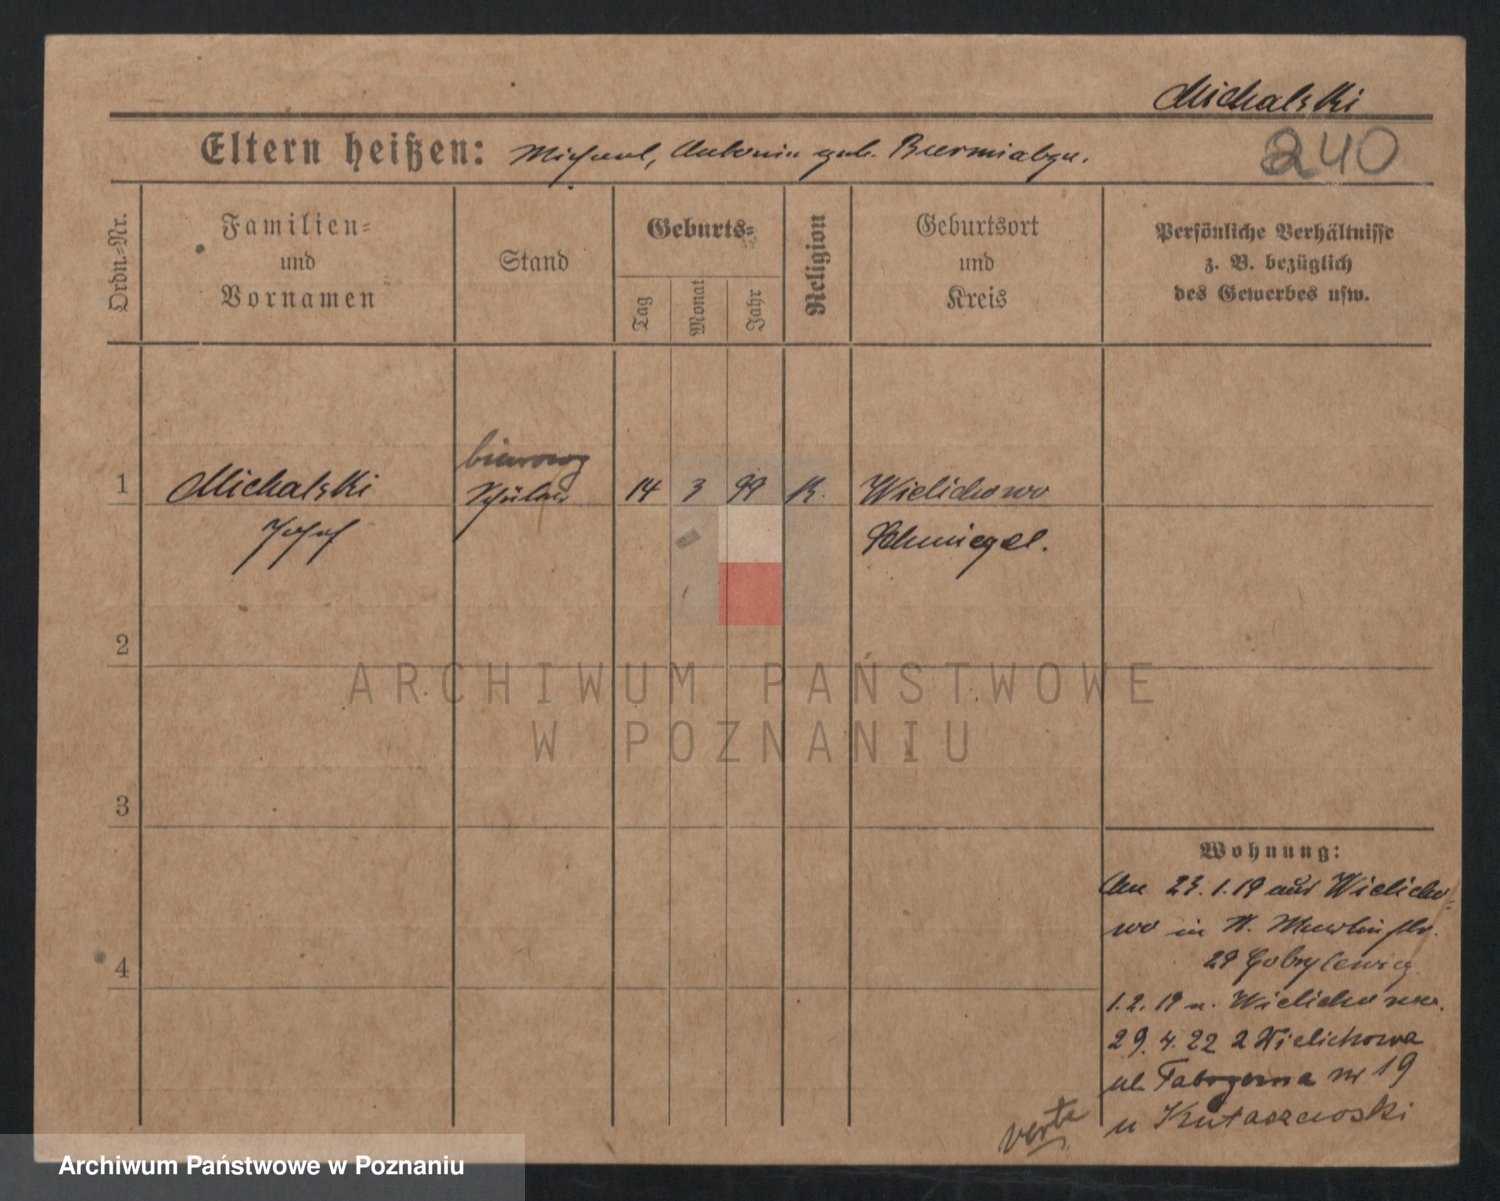 Michalski
Eltern heißen: Michael, Antonin geb.
240
Ordn.-Nr.
Familien-
und
Vornamen
Stand
Geburts-
Tag
Monat
Jahr
Religion
Geburtsort
und
Kreis
Persönliche Verhältnisse
z. B. bezüglich
des Gewerbes usw.
biurowy
1 Michalski Schüler 14 3 99 K. Wielichowo
Josef Schmiegel.
2
ARCHIWUM PAŃSTWOWE
W POZNANIU
3
Wohnung:
Am 23.1.19 aus Wielicho-
wo in
4
29
1.2.19 n. Wielichowo.
29.4.22 z Wielichowa
ul. nr 19
u
verte
Archiwum Państwowe w Poznaniu